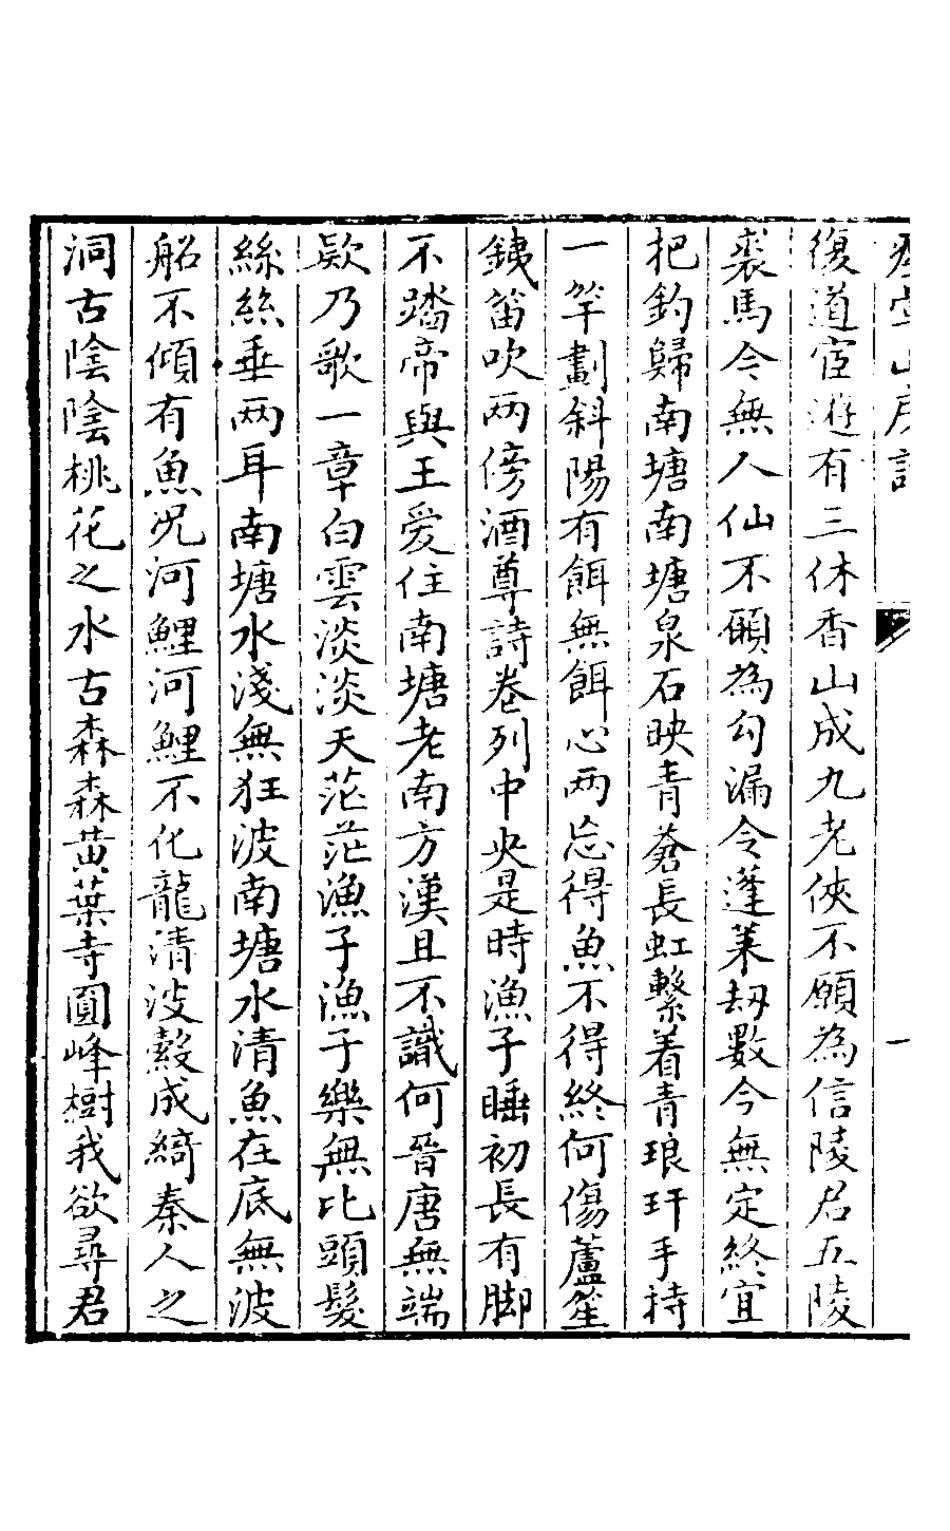 山房詩
一
復道宦遊有三休香山成九老俠不願為信陵君五陵
裘馬今無人仙不願為勾漏令蓬萊刼數今無定終宜
把釣歸南塘南塘泉石映青蒼長虹繫着青琅玕手持
一竿劃斜陽有餌無餌心兩忘得魚不得終何傷蘆笙
銕笛吹兩傍酒尊詩卷列中央是時漁子睡初長有脚
不踏帝與王爱住南塘老南方漢且不識何晉唐無端
欵乃歌一章白雲淡淡天茫茫漁子漁子樂無比頭髮
絲絲垂兩耳南塘水淺無狂波南塘水清魚在底無波
船不傾有魚况河鯉河鯉不化龍清波縠成綺秦人之
洞古陰陰桃花之水古森森黄葉寺圓峰樹我欲尋君